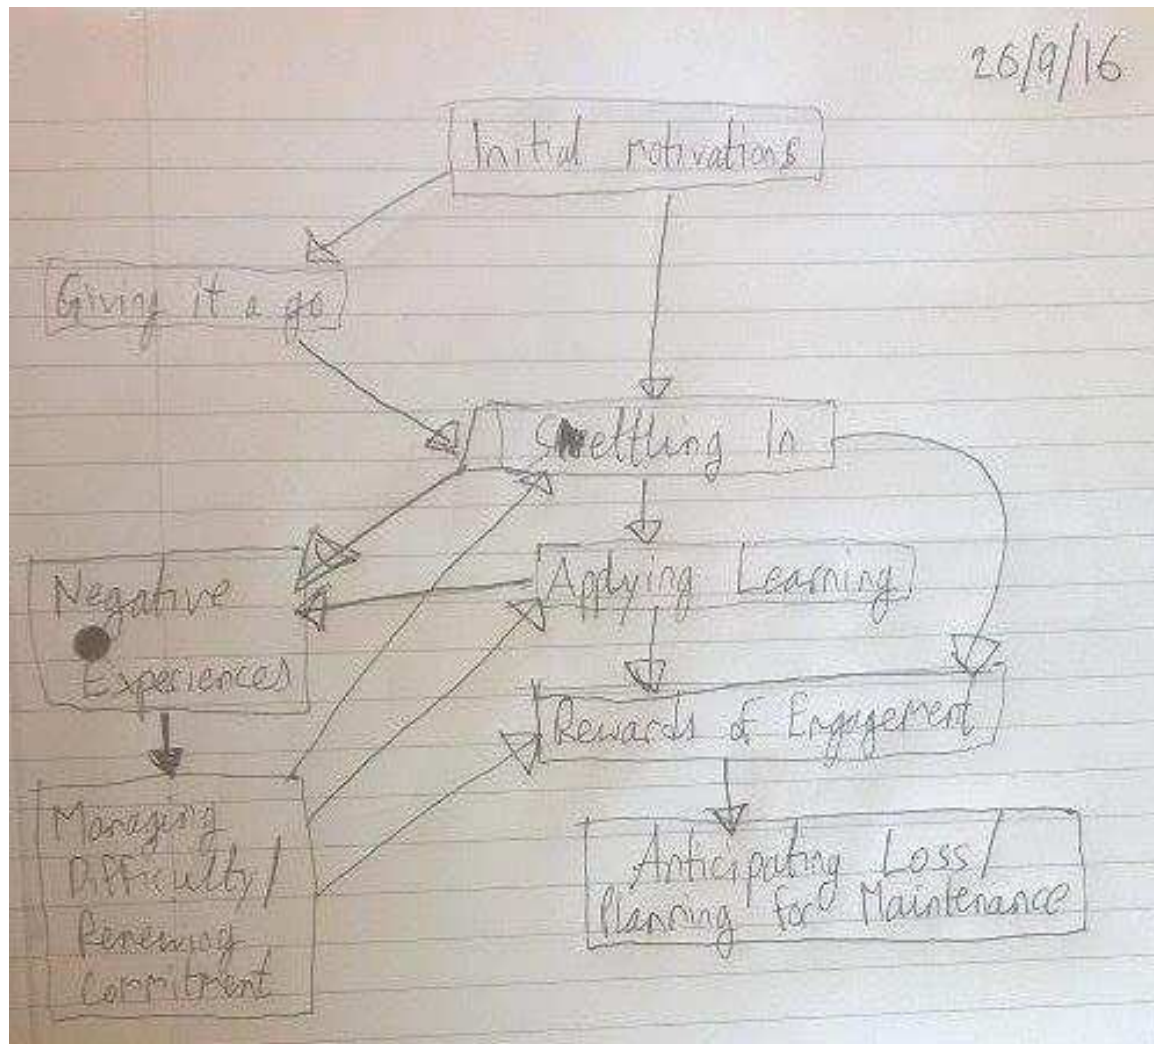 26/9/16
Initial motivations
Giving it a go
Settling In
Applying Learning
Negative
Experiences
Rewards of Engagement
Managing
Difficulty/
Renewing
Commitment
Anticipating Loss/
Planning for Maintenance